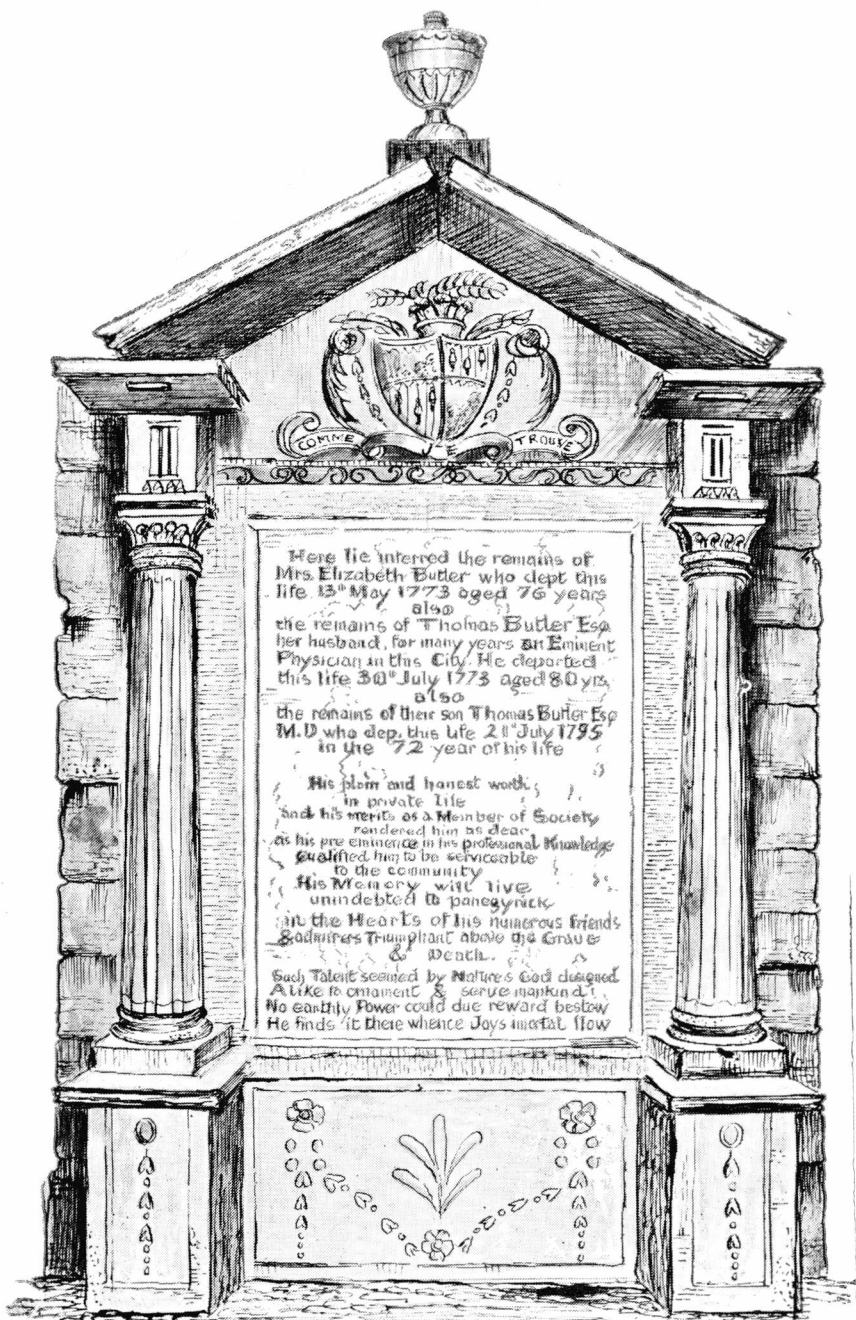 COMME JE TROUVE
Here lie interred the remains of
Mrs. Elizabeth Butler who dept this
life 13th May 1773 aged 76 years
also
the remains of Thomas Butler Esq
her husband, for many years an Eminent
Physician in this City. He departed
this life 30th July 1773 aged 80 yrs
also
the remains of their son Thomas Butler Esq
M.D who dep. this life 21st July 1795
in the 72 year of his life
His plain and honest worth
in private life
and his merits as a Member of Society
rendered him as dear
as his pre eminence in his professional Knowledge
Qualified him to be serviceable
to the community
His Memory will live
unindebted to panegyrick
in the Hearts of his numerous friends
& admirers Triumphant above the Grave
& Death.
Such Talent seemed by Natures God designed
Alike to ornament & serve mankind
No earthly Power could due reward bestow
He finds it there whence Joys imortal flow